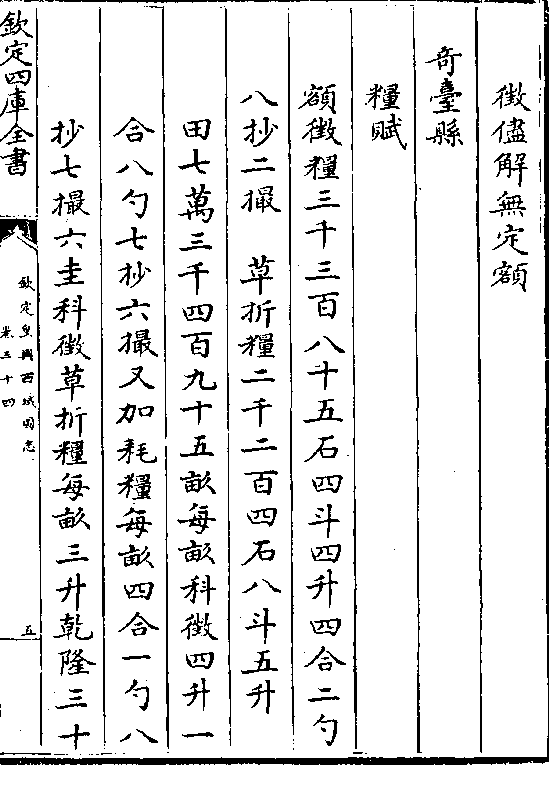 徴儘解無定額
奇臺縣
糧賦
額徴糧三千三百八十五石四斗四升四合二勺
八抄二撮　草折糧二千二百四石八斗五升
田七萬三千四百九十五畝每畝科徴四升一
合八勺七抄六撮又加耗糧每畝四合一勺八
抄七撮六圭科徴草折糧每畝三升乾隆三十
欽定四庫全書
欽定皇輿西域圖志
卷三十四
五